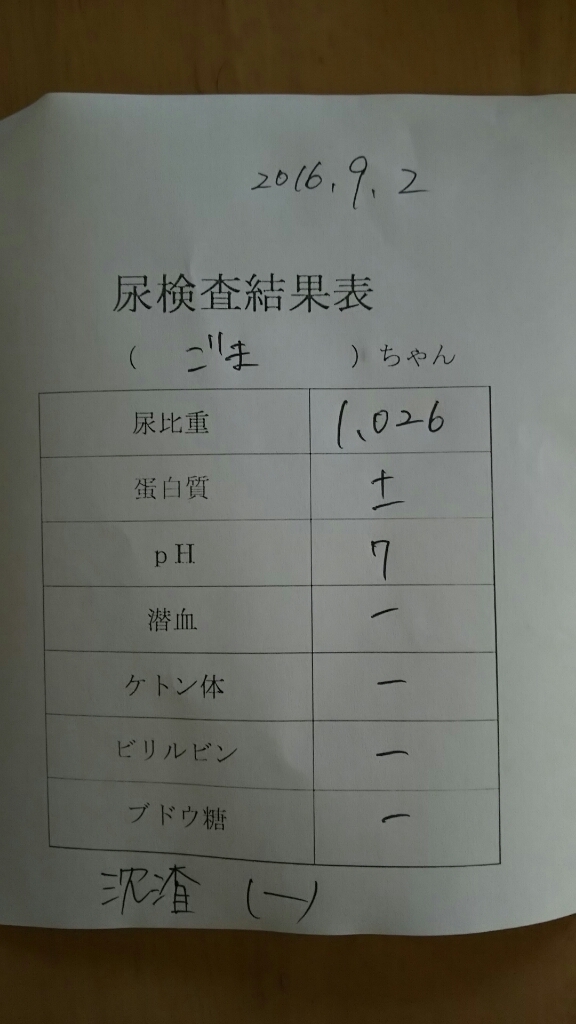 2016.9.2
尿検査結果表
( ごま ) ちゃん
尿比重 1.026
蛋白質 ±
pH 7
潜血 −
ケトン体 −
ビリルビン −
ブドウ糖 −
沈査 (−)